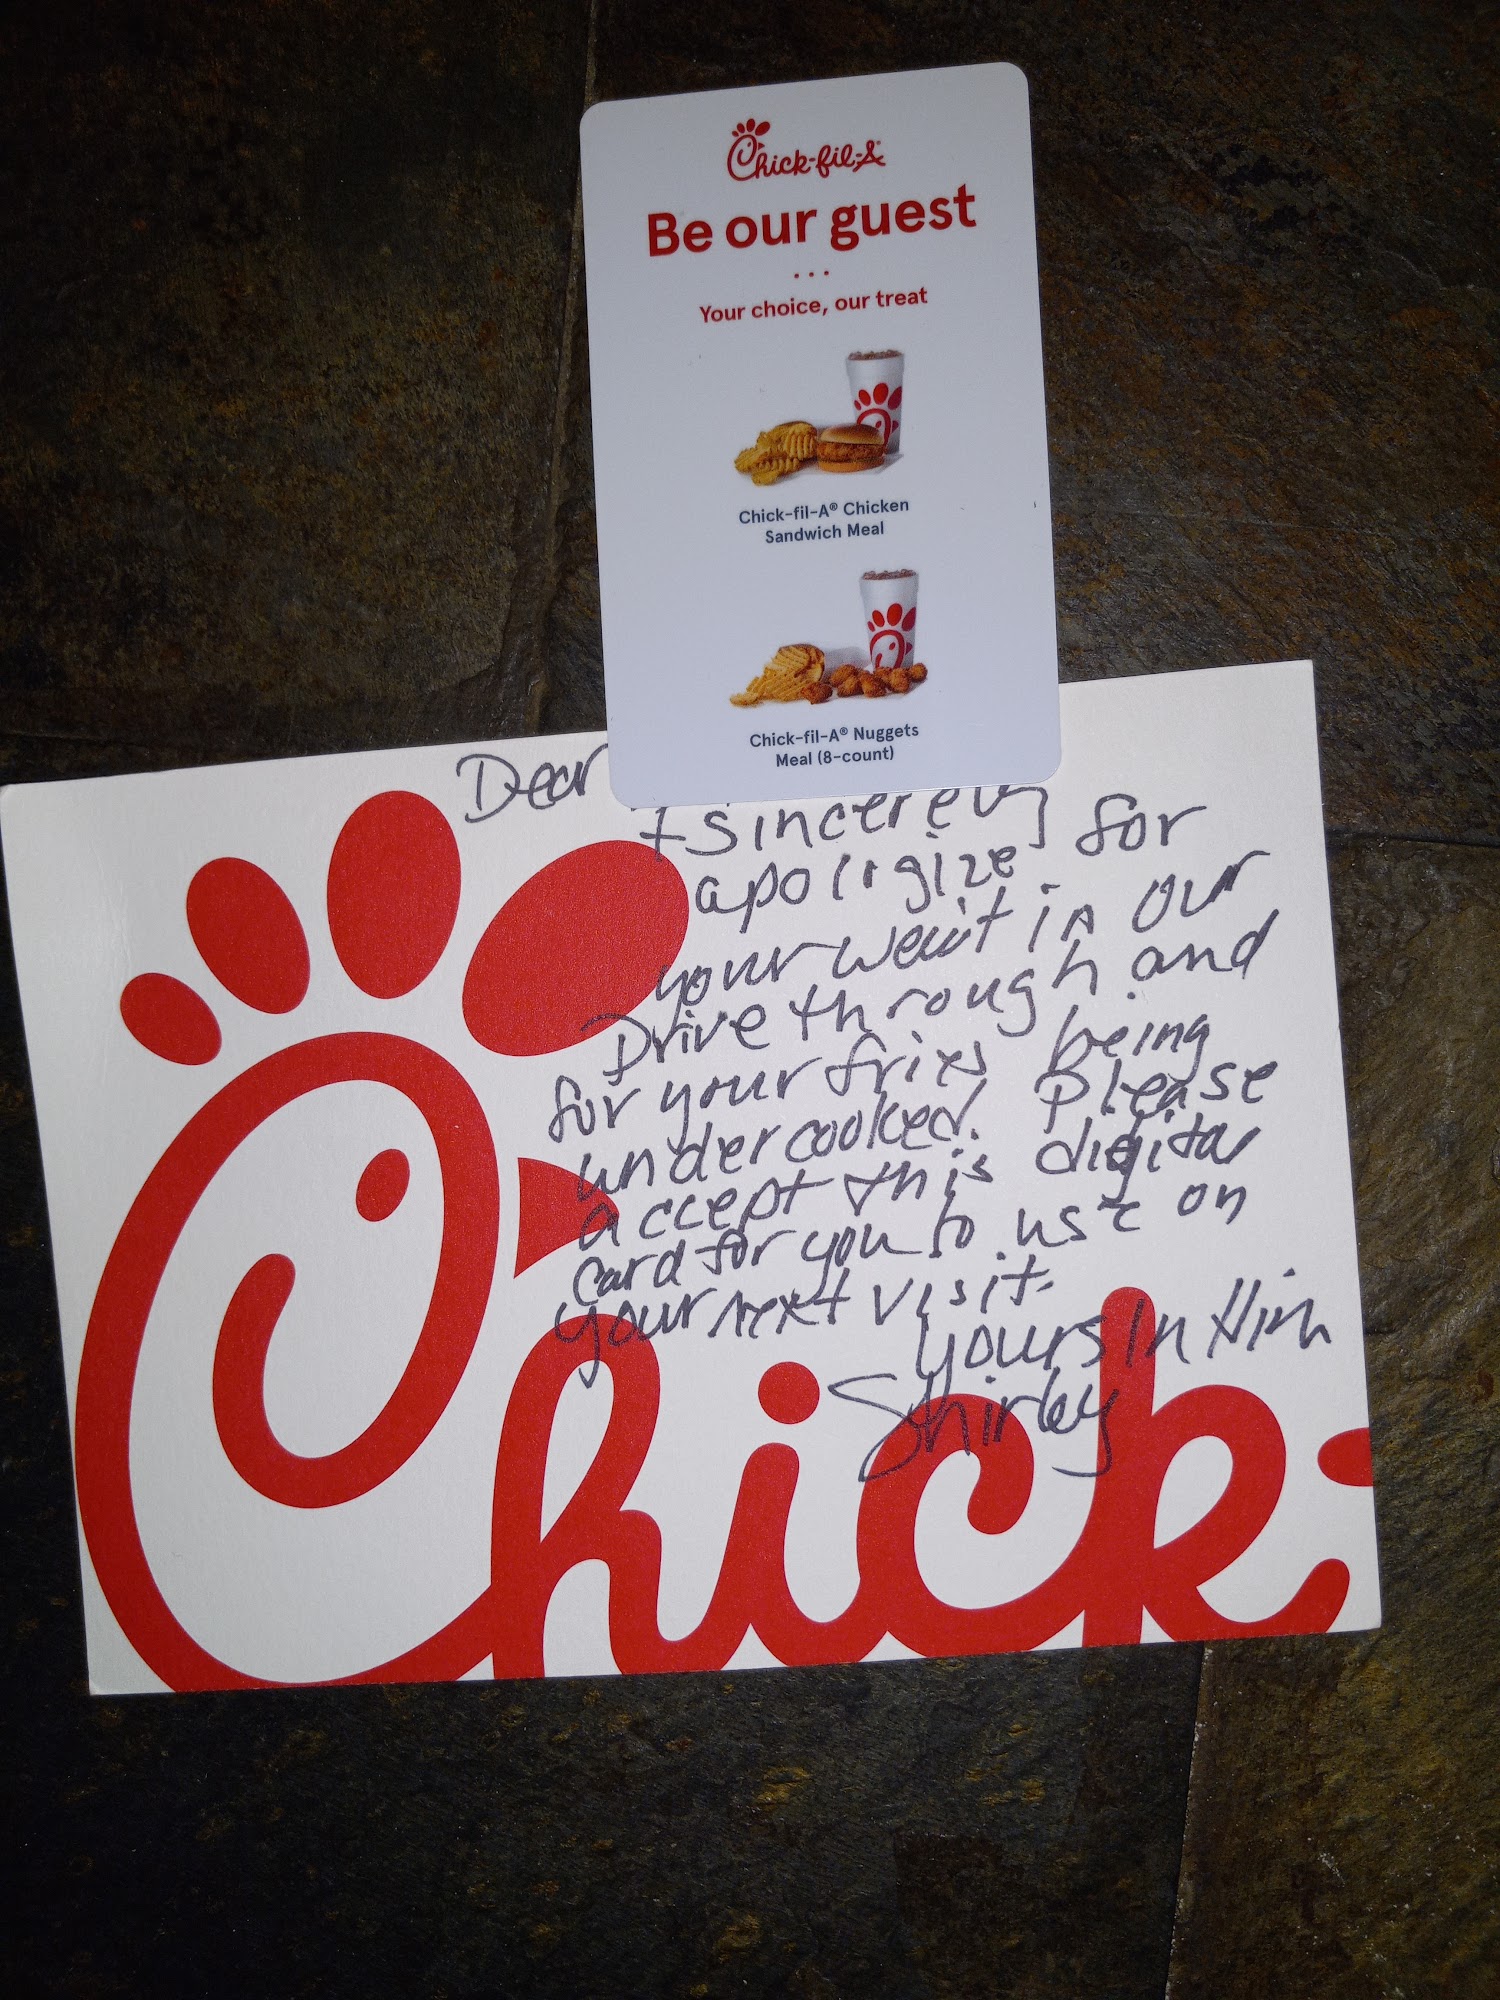 Chick-fil-A®
Be our guest
...
Your choice, our treat
Chick-fil-A® Chicken
Sandwich Meal
Chick-fil-A® Nuggets
Meal (8-count)
Dear
I sincerely
apoligize for
your wait in our
Drive through and
for your fries being
undercooked. Please
accept this digital
card for you to use on
your next visit.
Yours In Him
Shirley
Chick-